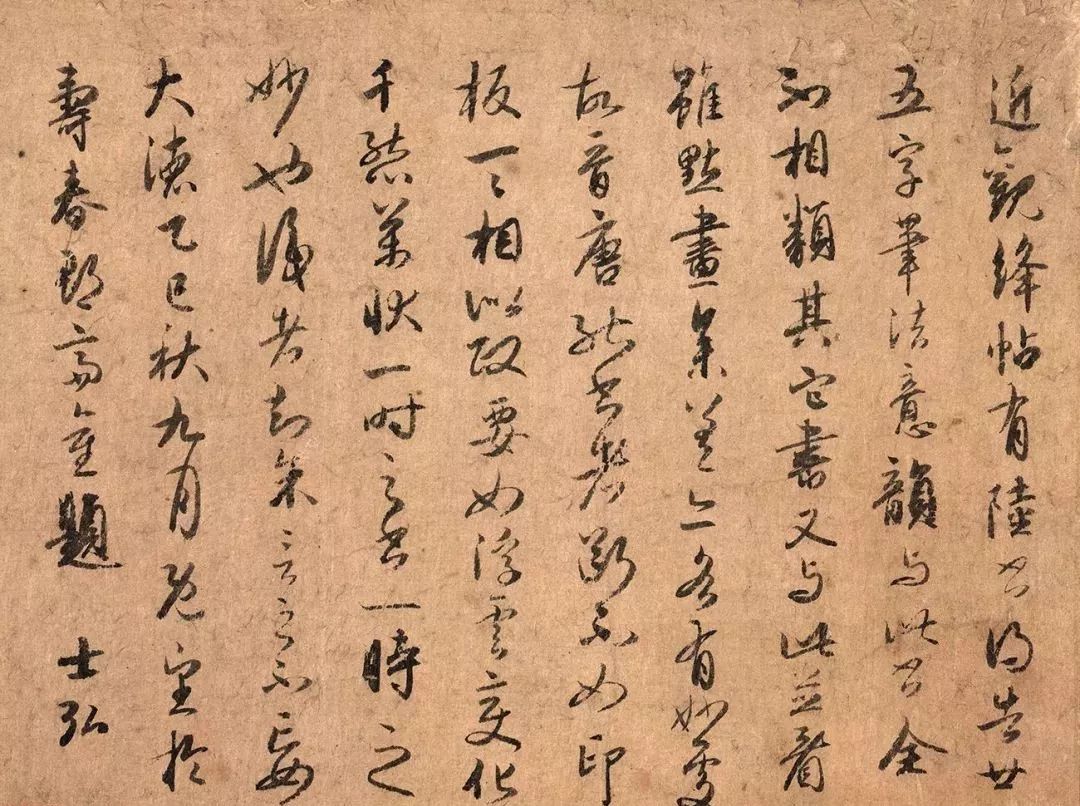 近觀絳帖有陸書得告廿
五字筆法意韻與此書全
不相類其它書又與此並看
雖點畫參差亦各有妙處
故晉唐能書者斷不如印
板一一相似政要如浮雲變化
千態萬狀一時之書一時之
妙也識者知余言之不妄
大德乙巳秋九月既望於
壽春郡齋重題 士弘